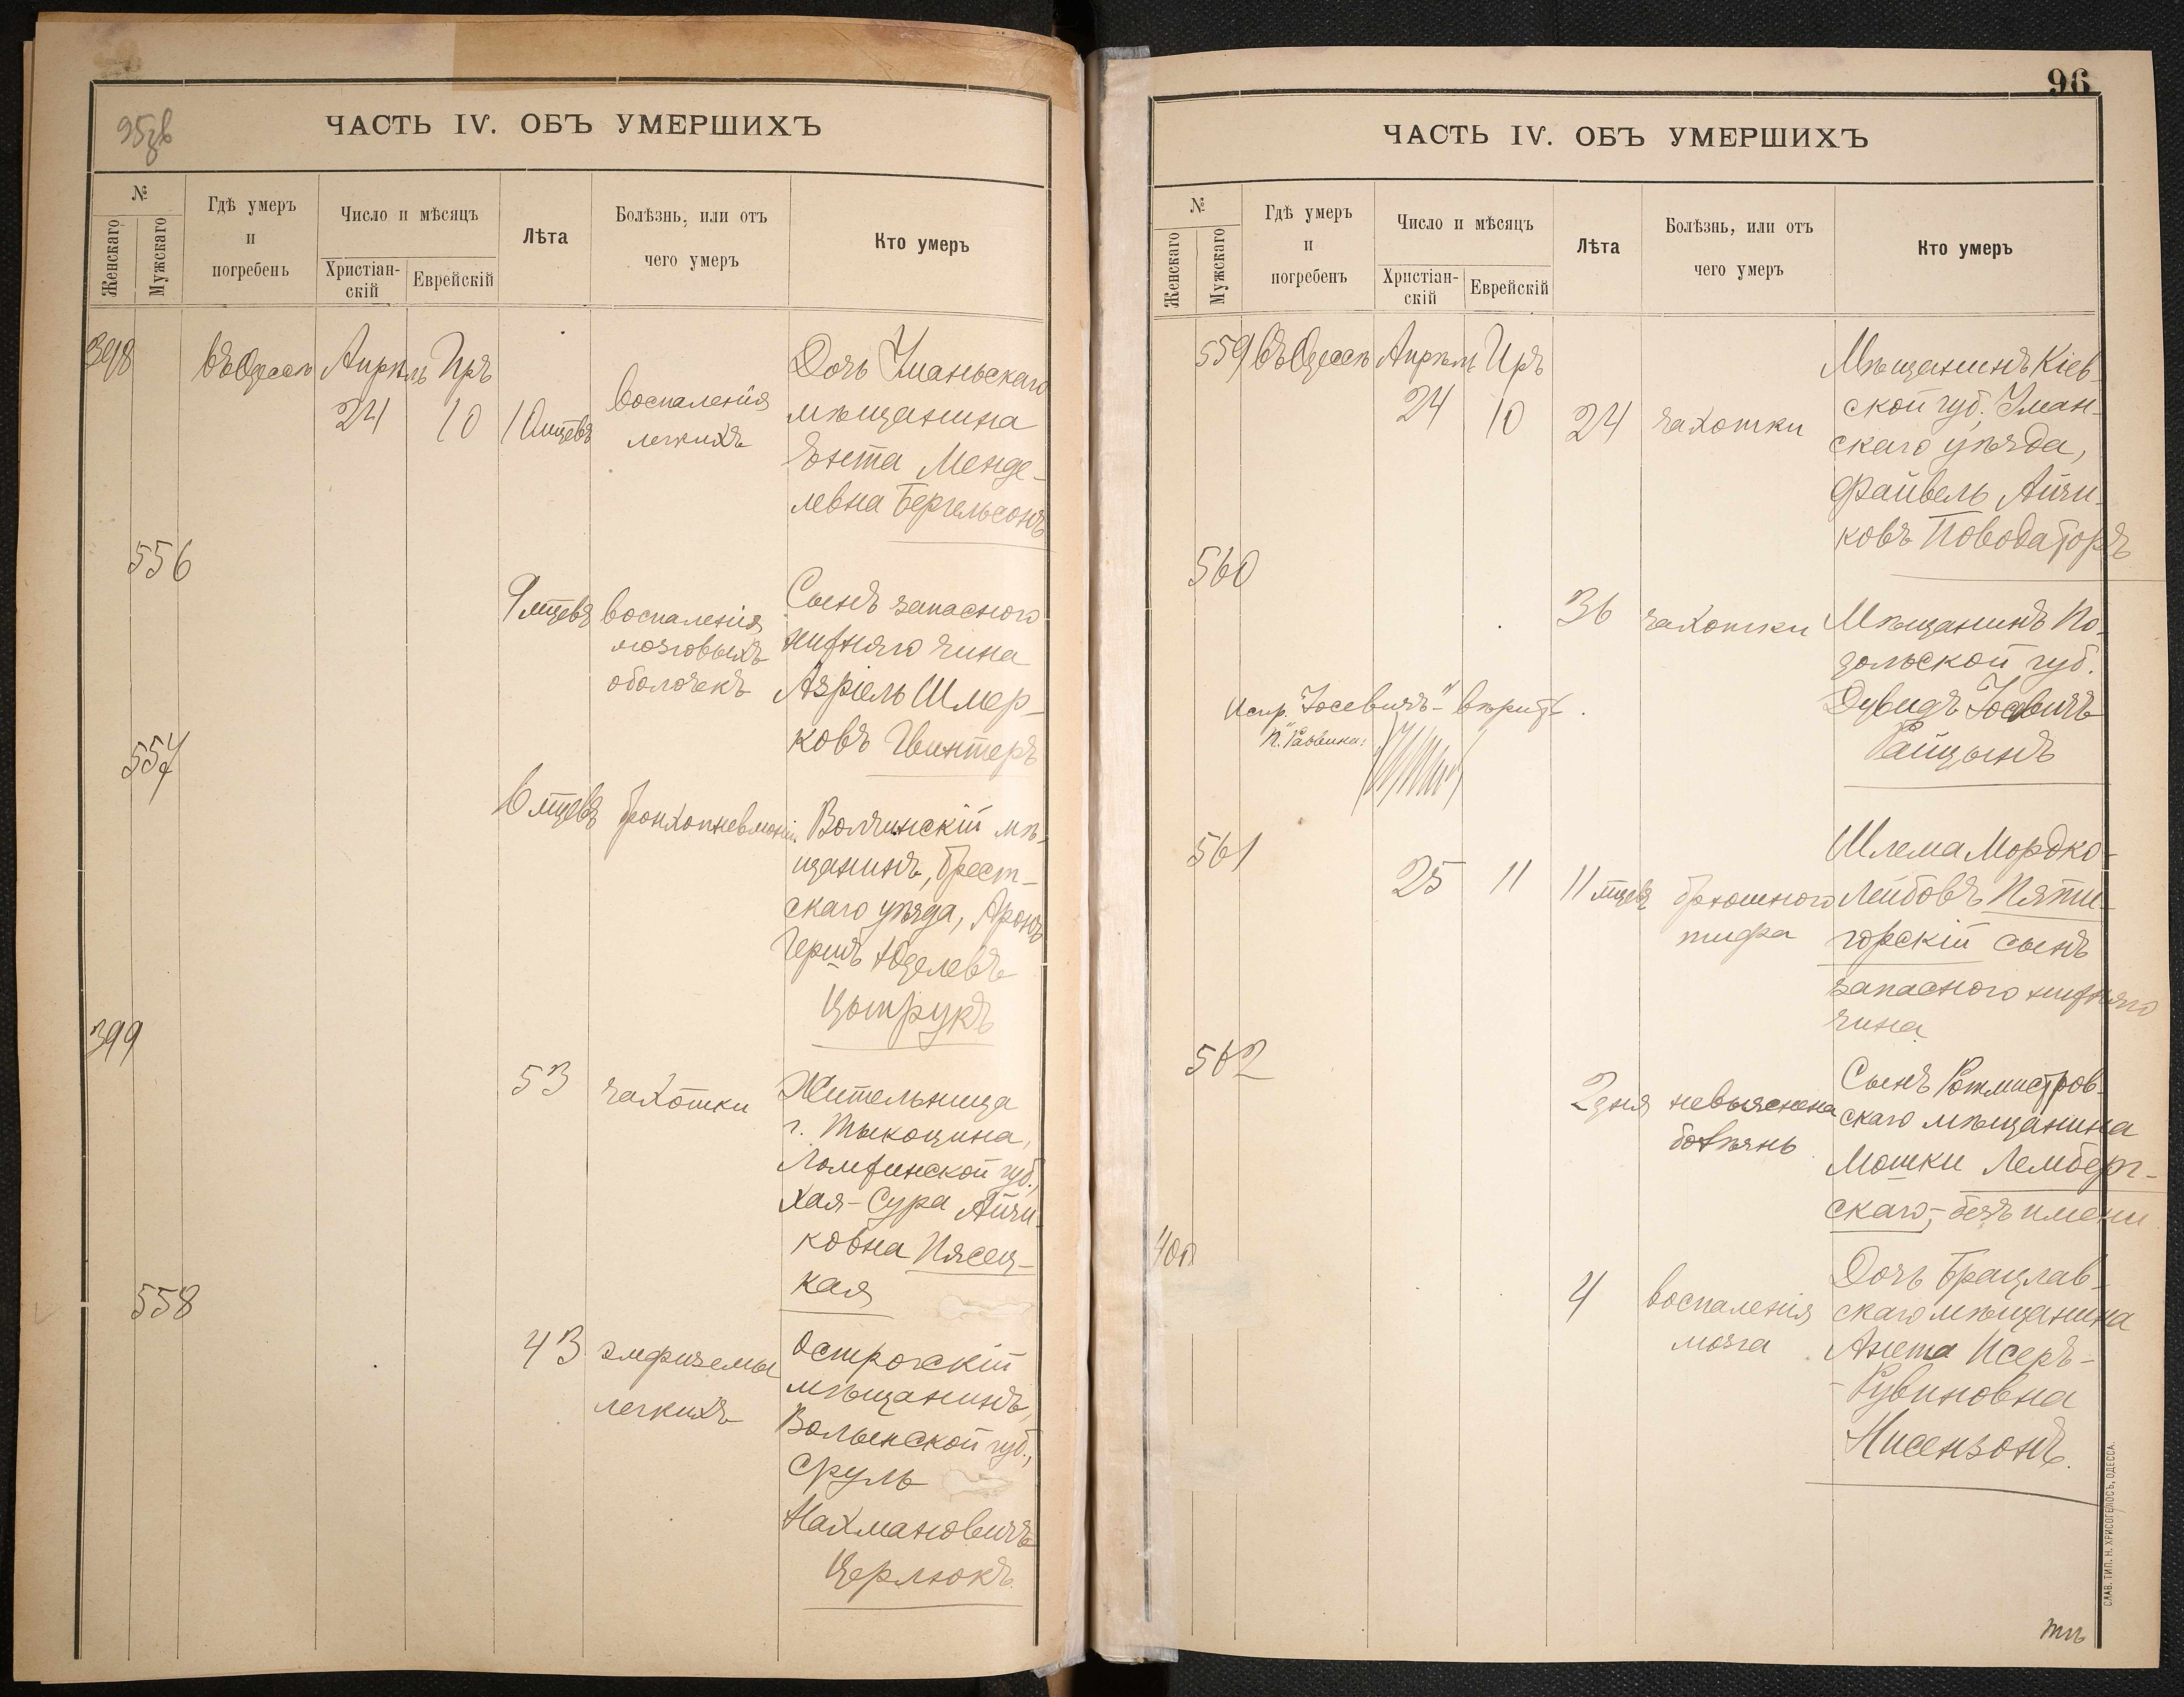 95зв
ЧАСТЬ IV. ОБЪ УМЕРШИХЪ
№
Женскаго
Мужскаго
Гдѣ умеръ
и
погребенъ
Число и мѣсяцъ
Христіан-
скій
Еврейскій
Лѣта
Болѣзнь, или отъ
чего умеръ
Кто умеръ
398
въ Одессѣ
Апрѣль
24
Іръ
10
10 мцевъ
воспаленія
легкихъ
Дочь Уманьскаго
мѣщанина
Энта Менде-
левна Бергельсонъ
556
9 мцевъ
воспаленія
мозговыхъ
оболочекъ
Сынъ запасного
нижняго чина
Азріель Шмер-
ковъ Гвинтеръ
557
6 мцевъ
бронхопневмоніи
Волчинскій мѣ-
щанинъ, Брест-
скаго уѣзда, Аронъ
Гершъ Юделевъ
Цытрукъ
399
53
чахотки
Жительница
г. Тыкоцина,
Ломжинской губ.,
Хая-Сура Айзи-
ковна Пясец-
кая
558
43
эмфиземы
легкихъ
Острогскій
мѣщанинъ,
Волынской губ.,
Сруль
Нахмановичъ
Церлюкъ.
96
ЧАСТЬ IV. ОБЪ УМЕРШИХЪ
№
Женскаго
Мужскаго
Гдѣ умеръ
и
погребенъ
Число и мѣсяцъ
Христіан-
скій
Еврейскій
Лѣта
Болѣзнь, или отъ
чего умеръ
Кто умеръ
559
въ Одессѣ
Апрѣль
24
Иръ
10
24
чахотки
Мѣщанинъ Кіев-
ской губ. Уман-
скаго уѣзда,
Файвель Айзи-
ковъ Поводаторъ
560
36
чахотки
Мѣщанинъ По-
дольской губ.
Дувидъ Іосевичъ
Райцынъ
Испр. "Іосевичъ-" вѣрить.
561
25
11
11 мцевъ
брюшного
тифа
Шлема Мордко-
Лейбовъ Пяти-
горскій сынъ
запасного нижняго
чина
562
2 дня
невыяснена
болѣзнь
Сынъ Ротмистров-
скаго мѣщанина
Мошки Лемберг-
скаго,-безъ имени
400
4
воспаленія
мозга
Дочь Брацлав-
скаго мѣщанина
Анета Исеръ-
-Рувиновна
Нисензонъ.
СЛАВ. ТИП. Н. ХРИСОГЕЛОСЪ, ОДЕССА.